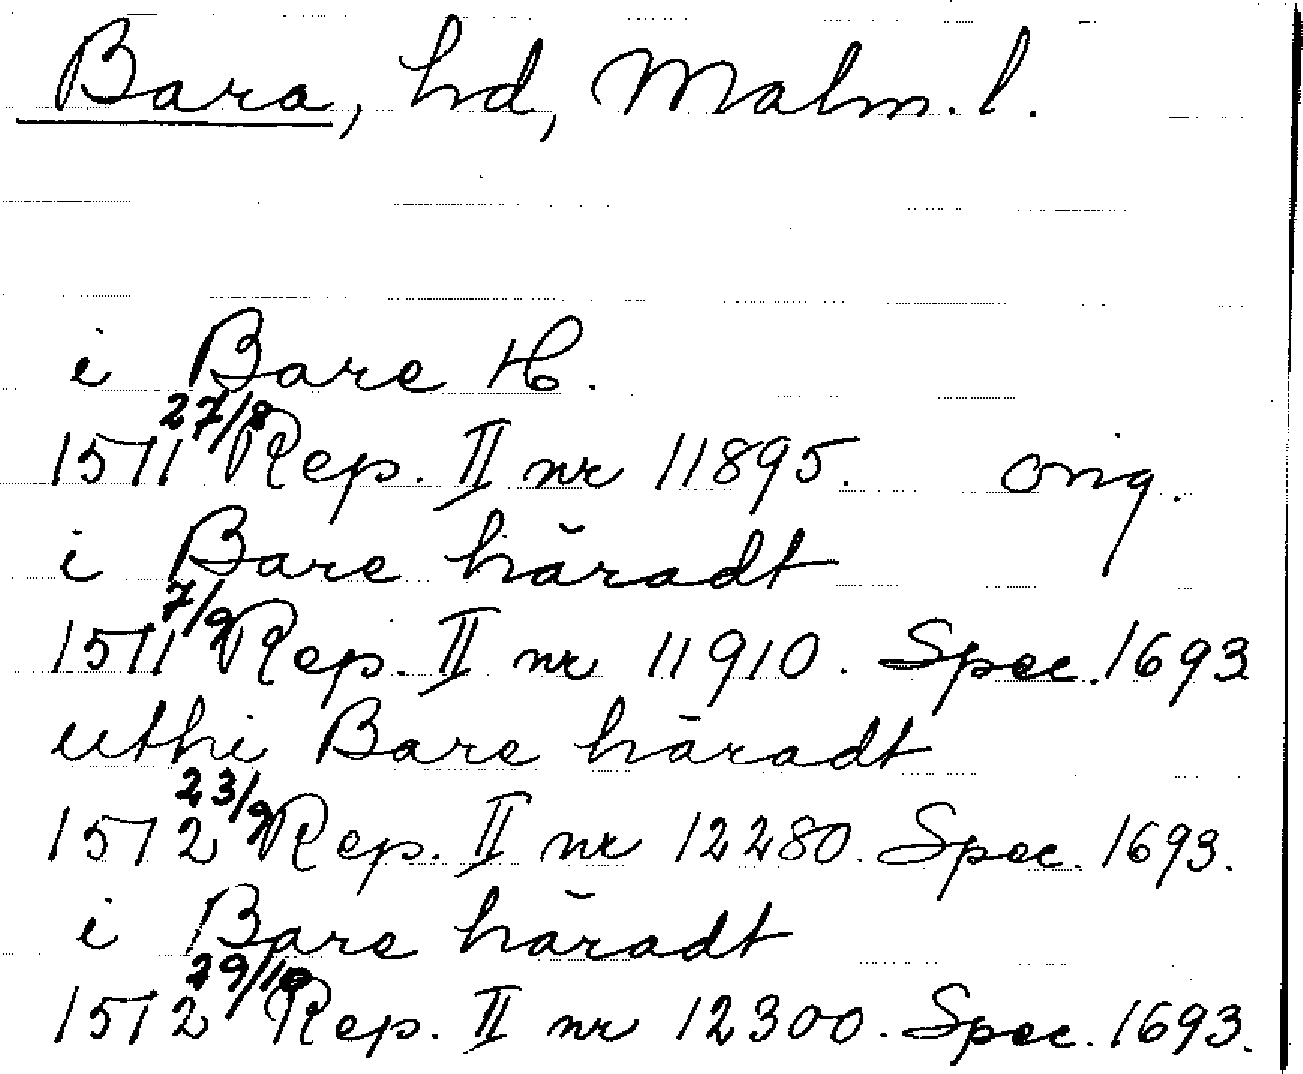 Bara, hd, Malm. l.
i Bare H.
1511 27/8 Rep. II nr 11895. orig.
i Bare häradt
1511 7/9 Rep. II nr 11910. Spec. 1693
uthi Bare häradt
1512 23/9 Rep. II nr 12280. Spec. 1693.
i Bare häradt
1512 29/10 Rep. II nr 12300. Spec. 1693.